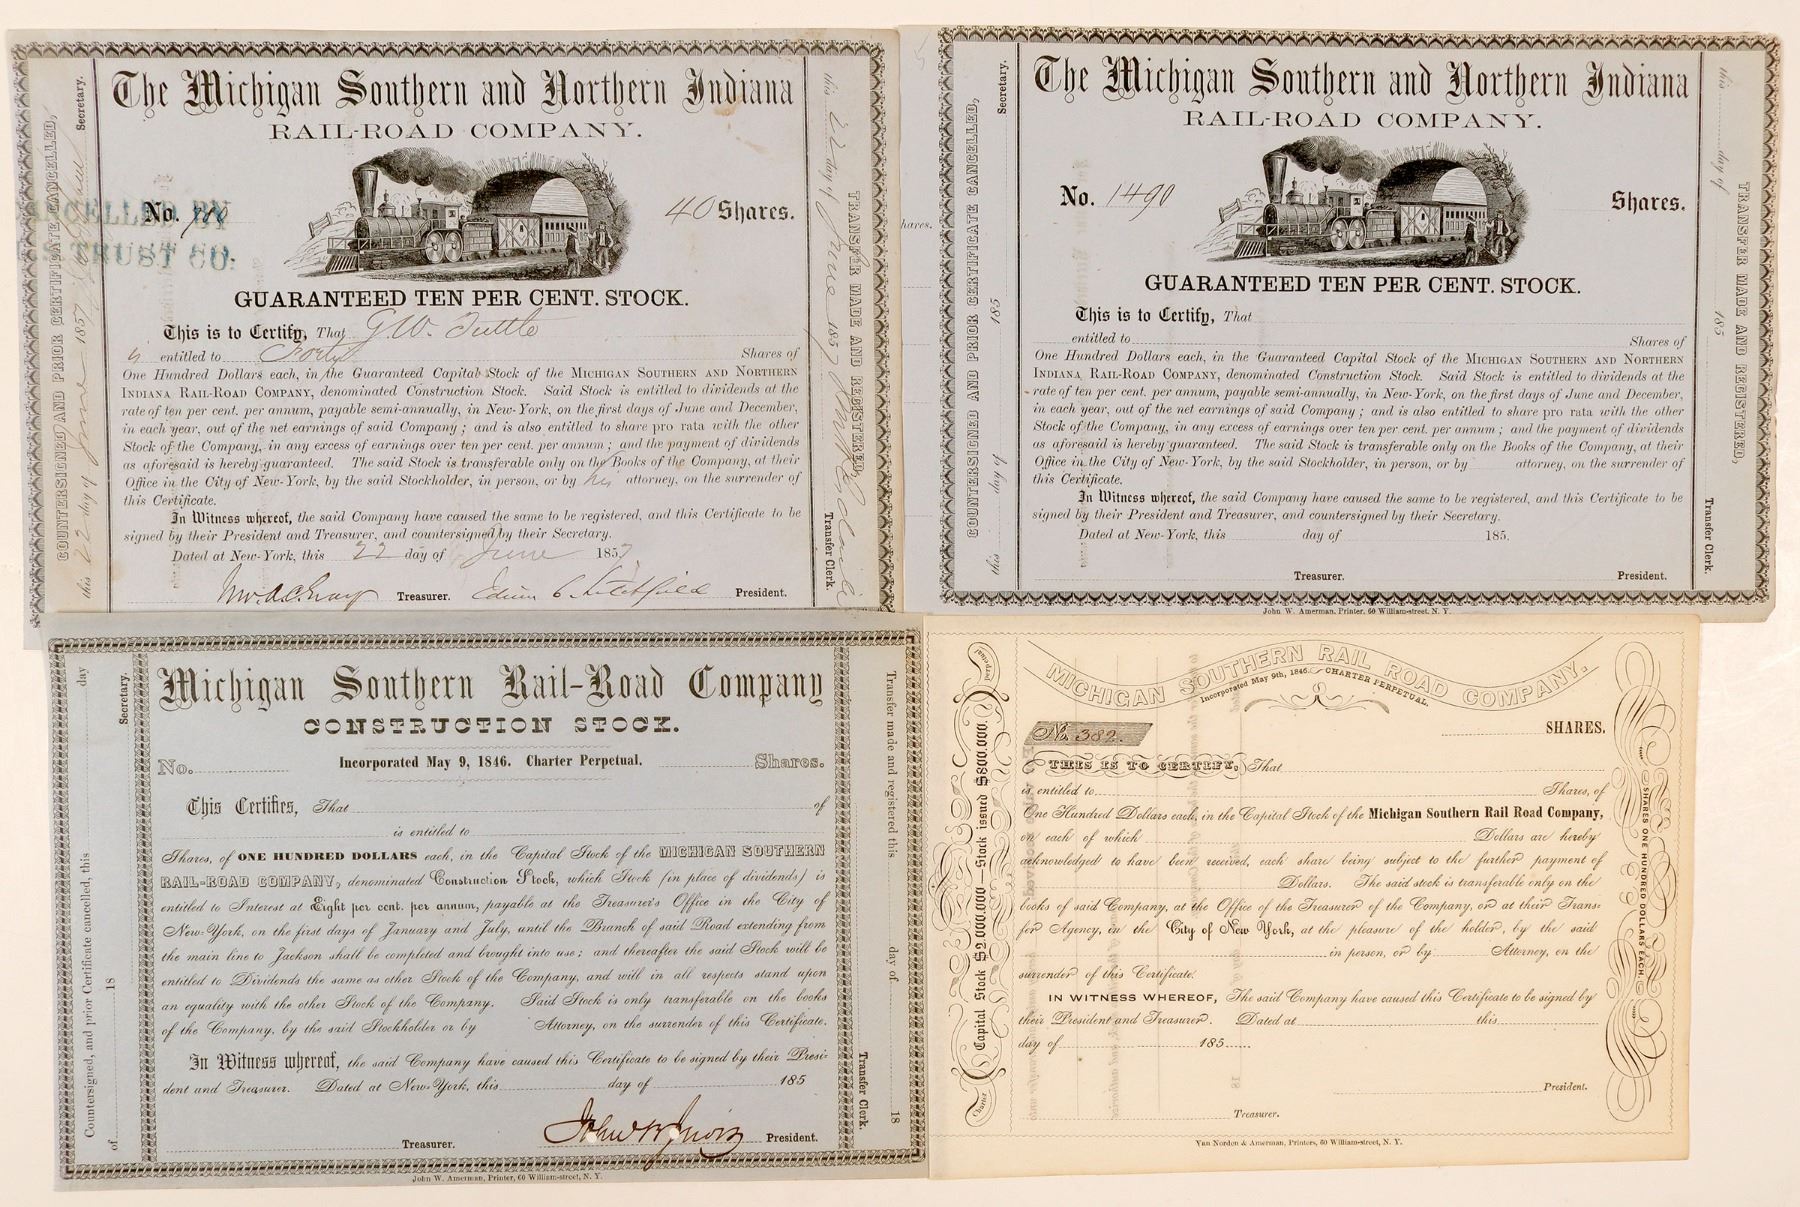 The Michigan Southern and Northern Indiana
RAIL-ROAD COMPANY.
CANCELLED BY
TRUST CO.
No.
40 Shares.
GUARANTEED TEN PER CENT. STOCK.
This is to Certify, That G.W. Tuttle
is entitled to Forty Shares of
One Hundred Dollars each, in the Guaranteed Capital Stock of the MICHIGAN SOUTHERN AND NORTHERN
INDIANA RAIL-ROAD COMPANY, denominated Construction Stock. Said Stock is entitled to dividends at the
rate of ten per cent. per annum, payable semi-annually, in New-York, on the first days of June and December,
in each year, out of the net earnings of said Company; and is also entitled to share pro rata with the other
Stock of the Company, in any excess of earnings over ten per cent. per annum; and the payment of dividends
as aforesaid is hereby guaranteed. The said Stock is transferable only on the Books of the Company, at their
Office in the City of New-York, by the said Stockholder, in person, or by his attorney, on the surrender of
this Certificate.
In Witness whereof, the said Company have caused the same to be registered, and this Certificate to be
signed by their President and Treasurer, and countersigned by their Secretary.
Dated at New-York, this 22 day of June 1857
Treasurer. President.
COUNTERSIGNED AND PRIOR CERTIFICATE CANCELLED,
this 22 day of June 1857 Secretary.
TRANSFER MADE AND REGISTERED,
this 22 day of June 1857 Transfer Clerk.
The Michigan Southern and Northern Indiana
RAIL-ROAD COMPANY.
No. 1490
Shares.
GUARANTEED TEN PER CENT. STOCK.
This is to Certify, That
entitled to Shares of
One Hundred Dollars each, in the Guaranteed Capital Stock of the MICHIGAN SOUTHERN AND NORTHERN
INDIANA RAIL-ROAD COMPANY, denominated Construction Stock. Said Stock is entitled to dividends at the
rate of ten per cent. per annum, payable semi-annually, in New-York, on the first days of June and December,
in each year, out of the net earnings of said Company; and is also entitled to share pro rata with the other
Stock of the Company, in any excess of earnings over ten per cent. per annum; and the payment of dividends
as aforesaid is hereby guaranteed. The said Stock is transferable only on the Books of the Company, at their
Office in the City of New-York, by the said Stockholder, in person, or by attorney, on the surrender of
this Certificate.
In Witness whereof, the said Company have caused the same to be registered, and this Certificate to be
signed by their President and Treasurer, and countersigned by their Secretary.
Dated at New-York, this day of 185.
Treasurer. President.
John W. Amerman, Printer, 60 William-street, N. Y.
COUNTERSIGNED AND PRIOR CERTIFICATE CANCELLED,
this day of 185 Secretary.
TRANSFER MADE AND REGISTERED,
this day of 185 Transfer Clerk.
hares.
Michigan Southern Rail-Road Company
CONSTRUCTION STOCK.
No. Incorporated May 9, 1846. Charter Perpetual. Shares.
This Certifies, That of
is entitled to
Shares, of ONE HUNDRED DOLLARS each, in the Capital Stock of the MICHIGAN SOUTHERN
RAIL-ROAD COMPANY, denominated Construction Stock, which Stock (in place of dividends) is
entitled to Interest at Eight per cent. per annum, payable at the Treasurer's Office in the City of
New-York, on the first days of January and July, until the Branch of said Road extending from
the main line to Jackson shall be completed and brought into use; and thereafter the said Stock will be
entitled to Dividends the same as other Stock of the Company, and will in all respects stand upon
an equality with the other Stock of the Company. Said Stock is only transferable on the books
of the Company, by the said Stockholder or by Attorney, on the surrender of this Certificate.
In Witness whereof, the said Company have caused this Certificate to be signed by their Presi-
dent and Treasurer. Dated at New-York, this day of 185
Treasurer. President.
John W. Amerman, Printer, 60 William-street, N. Y.
Countersigned, and prior Certificate cancelled, this day
of 18 Secretary.
Transfer made and registered this day of 18
Transfer Clerk.
MICHIGAN SOUTHERN RAIL ROAD COMPANY.
Incorporated May 9th, 1846. CHARTER PERPETUAL.
No. 382. SHARES.
THIS IS TO CERTIFY, That
is entitled to Shares, of
One Hundred Dollars each, in the Capital Stock of the Michigan Southern Rail Road Company,
on each of which Dollars are hereby
acknowledged to have been received, each share being subject to the further payment of
Dollars. The said stock is transferable only on the
books of said Company, at the Office of the Treasurer of the Company, or at their Trans-
fer Agency, in the City of New York, at the pleasure of the holder, by the said
in person, or by Attorney, on the
surrender of this Certificate.
IN WITNESS WHEREOF, The said Company have caused this Certificate to be signed by
their President and Treasurer. Dated at this
day of 185
President.
Treasurer.
Van Norden & Amerman, Printers, 60 William-street, N. Y.
Charter Perpetual
Capital Stock $2,000,000—Stock issued $800,000.
SHARES ONE HUNDRED DOLLARS EACH.